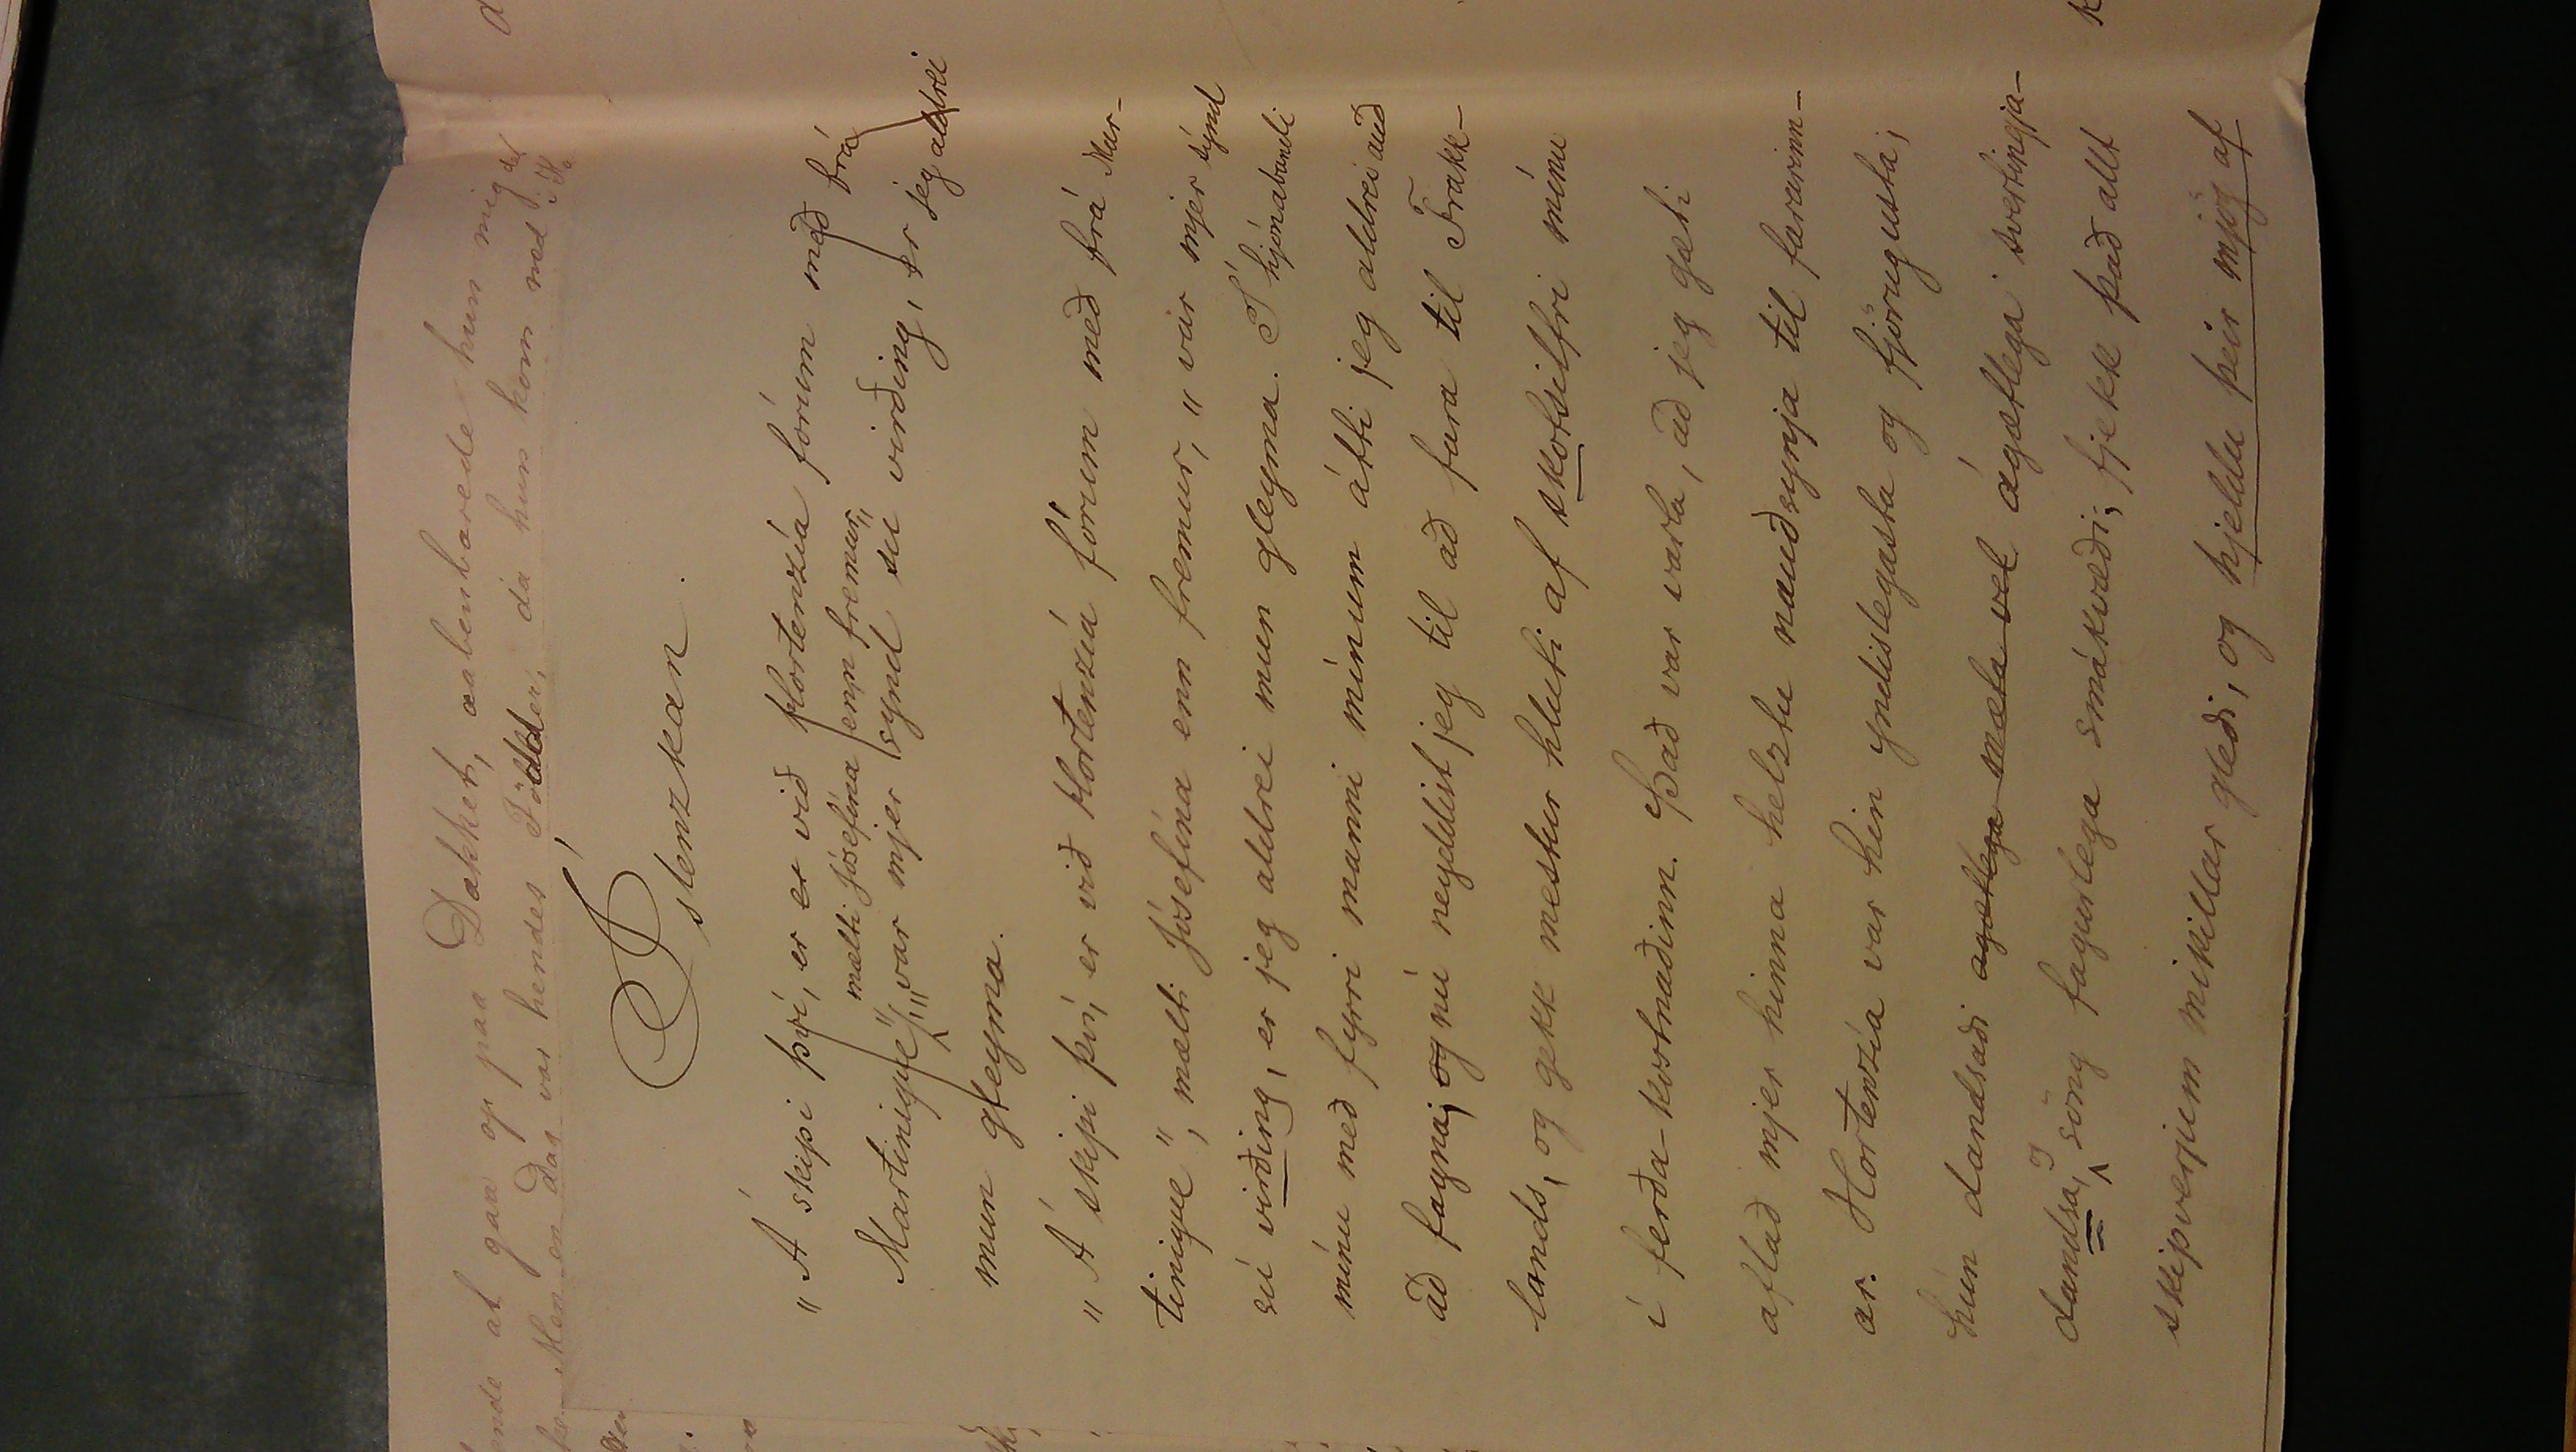 ende at gaa op paa Dækket, aabenbarede hun mig det
Men en Dag var hendes Födder, da hun kom ned
Íslenzkan.
„Á skipi því, er er við Hortenzía fórum með frá
mælti Jósefína enn fremur
Martinique", „var mjer synd sú virðing, er jeg aldrei
mun gleyma.
„Á skipi því, er við Hortenzía fórum með frá Mar-
tinique", mælti Jósefína enn fremur, „var mjer sýnd
sú virðing, er jeg aldrei mun gleyma. Í hjónabandi
mínu með fyrri manni mínum átti jeg aldrei auð
að fagna; og nú neyddist jeg til að fara til Frakk-
lands, og gekk mestur hluti af skotsilfri mínu
í ferða-kostnaðinn. Það var varla, að jeg gæti
aflað mjer hinna helztu nauðsynja til fararinn-
ar. Hortenzía var hin yndislegasta og fjörugusta;
hún dandsaði agætlega mæta vel ágætlega svertingja-
dandsa, og söng fagurlega smákvæði; fjekk það allt
skipverjum mikillar gleði, og hjeldu þeir mjög af